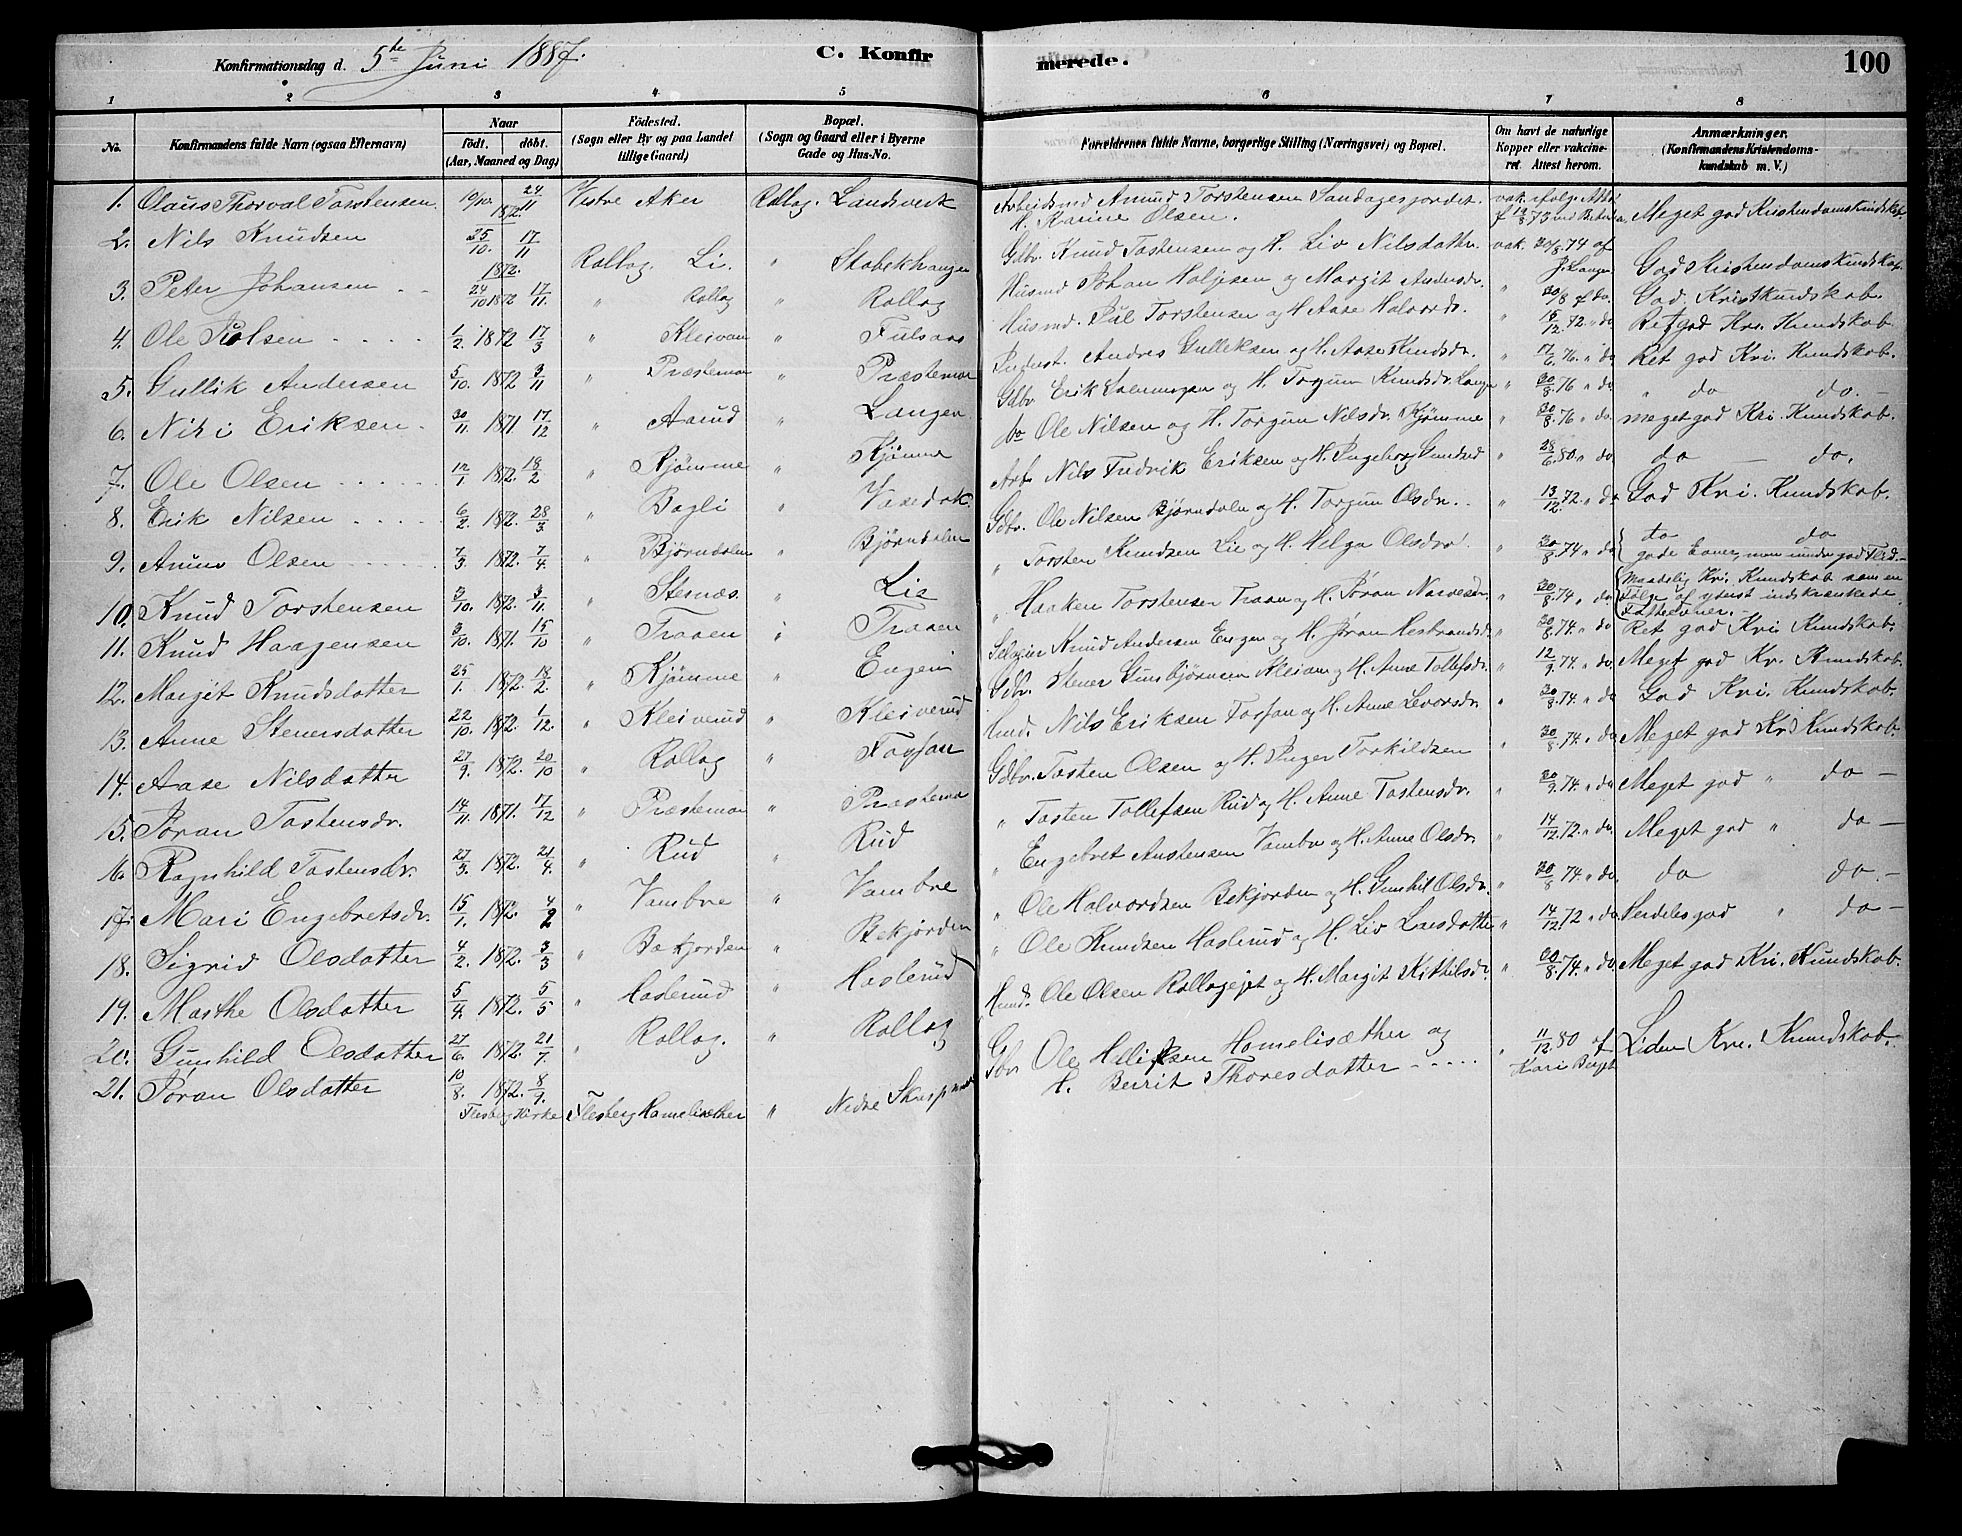 Konfirmationsdag d. 5te Juni 1887. C. Konfir merede. 100
1 2 3 4 5 6 7 8
No. Konfirmandens fulde Navn (ogsaa Efternavn) Naar født. døbt. (Aar, Maaned og Dag) Fødested. (Sogn eller By og paa Landet tillige Gaard) Bopæl. (Sogn og Gaard eller i Byerne Gade og Hus-No. Forældrenes fulde Navne, borgerlige Stilling (Næringsvei) og Bopæl. Om havt de naturlige Kopper eller vakcineret. Attest herom. Anmærkninger. (Konfirmandens Kristendomskundskab m. V.)
1. Olaus Thorval Torstensen 19/10. 1872. 24/11 Vestre Aker Rollag. Landsverk Arbeidsmd Amund Torstensen Sandagesjordet. H. Karine Olsen. Meget god Kristendomskundskab
2. Nils Knudsen 25/10. 1872. 17/11 Rollag. Li. " Gdbr. Knud Tostensen og H. Liv Nilsdatter. vak. 30/8.74 af J. Langen God Kristendomskundskab.
3. Peter Johansen 24/10 1872 17/11. " Rollag " Rollag Husmd Johan Holjesen og Margit Andersdr. " 30/8 " do. God. Kristkundskab.
4. Ole Julsen 1/2. 1872 17/3 " Kleivan " Fulsaas Husmd. Jul Torstensen og H Aase Halvordr. " 15/12.72. " do Ret god Kri. Kundskab.
5. Gullik Andersen 5/10. 1872 3/11 " Præstemoen " Præstemoen Andres Gulleksen og H. Aase Knudsdr. " 17/6.76. " do Ret god Kri. Kundskab.
6. Nils Eriksen 30/11 1871 17/12 " Aasud " Langen Gdbr. Erik og H. Torgun Knudsdr. Langen " 30/8.76 " do " do do.
7. Ole Olsen 12/1 1872. 18/2 " Kjømme " Kjømme do Ole Nilsen og H. Torgun Nilsdr. Kjømme " 30/8.76 " do meget god Kri. Kundskab.
8. Erik Nilsen 6/2. 1872. 28/3 " Bagli " Arb. Nils Fredrik Eriksen og H. Ingeborg " 28/6.80 " do do do.
9. Anun Olsen 7/3 1872. 7/4. " Bjørndalen " Bjørndalen Gdbr. Ole Nilsen Bjørndalen og H. Torgun Olsdr. " 13/12.72. " do God Kri. Kundskab.
10. Knud Torstensen 3/10. 1872. 3/11. " Stenæs. " Lie " Torsten Knudsen Lie og H. Helga Olsdr. " 30/8.74 " do do do gode Evner, men mindre god Flid.
11. Knud Haagensen 3/10. 1871. 15/10 " Traaen " Traaen " Haaken Torstensen Traaen og H. Jøran Narvesdr. " 30/8.74 " do. Maadelig Kri. Kundskab som en Følge af yderst indskrænkede Fatteevner.
12. Margit Knudsdatter 25/1. 1872. 18/2. " Kjømme " Engen Selveier Knud Andersen Engen og H. Jøran Herbrandsdr. " 30/8.74. " do Ret god Kri Kundskab.
13. Anne Stenersdatter 22/10. 1872. 1/12. " Kleiverud " Kleiverud Gdbr. Stener Gunbjørnsen og H. Anne Tollefsdr. " 12/9.74. " do Meget god Kr. Kundskab.
14. Aase Nilsdatter 27/9. 1872. 20/10 " Rollag " Fosfan Husmd. Nils Eriksen Fosfan og H. Anne Levorsdr. " 30/8.74. " do God Kri. Kundskab.
15. Jøran Tostensdr. 14/11. 1871. 17/12 " Præstemoen " Præstemoen Gdbr. Tosten Olsen og H. Inger Torkildsen " 30/8.74. " do Meget god Kr. Kundskab.
16. Ragnhild Tostensdr. 27/3. 1872. 21/4. " Rud " Rud " Tosten Tollefsen Rud og H. Anne Tostensdr. " 30/9.74. " do Meget god " do
17. Mari Engebretsdr. 15/1. 1872. 4/2 " Vambre " Vambre " Engebret Anstensen Vambre og H. Anne Olsdr. " 14/12.72. " do Meget god " do
18. Sigrid Olsdatter 4/2. 1872. 3/3 " Bekjorden " Bekjorden " Ole Halvordsen Bekjorden og H. Gunhil Olsdr. " 30/8.74. " do. do do.
19. Marthe Olsdatter 5/4. 1872. 5/5 " Haslerud " Haslerud " Ole Knudsen Haslerud og H. Liv Larsdatter " 14/12.72 " do Særdeles god " do
20. Gunhild Olsdatter 27/6. 1872. 21/7. " Rollag. " Rollag Husmd. Ole Olsen Rollagejet og H. Margit Kittilsdr. " 30/8.74. " do Meget god Kri. Kundskab.
21. Jøran Olsdatter 10/8. 1872. 8/9. Flesberg Kirke Flesberg Hamelisæther " Nedre Gbr Ole Helliksen Hamelisæther og H. Berrit Thoresdatter " 11/12.80 af Kari Berget Liden Kri. Kundskab.